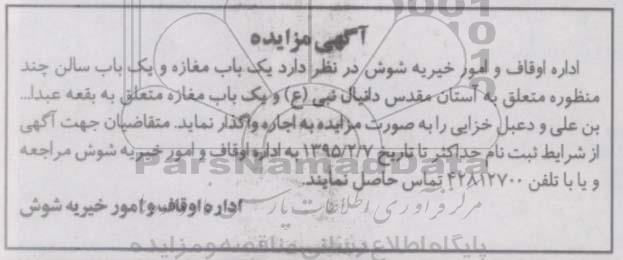 آگهی مزایده
اداره اوقاف و امور خیریه شوش در نظر دارد یک باب مغازه و یک باب سالن چند
منظوره متعلق به آستان مقدس دانیال نبی (ع) و یک باب مغازه متعلق به بقعه عبدا...
بن علی و دعبل خزایی را به صورت مزایده به اجاره واگذار نماید. متقاضیان جهت آگهی
از شرایط ثبت نام حداکثر تا تاریخ ۱۳۹۵/۲/۷ به اداره اوقاف و امور خیریه شوش مراجعه
ParsNamadData
و یا با تلفن ۴۲۸۱۲۷۰۰ تماس حاصل نمایند.
مرکز فرآوری اطلاعات پارس
اداره اوقاف و امور خیریه شوش
پایگاه اطلاع رسانی مناقصه و مزایده